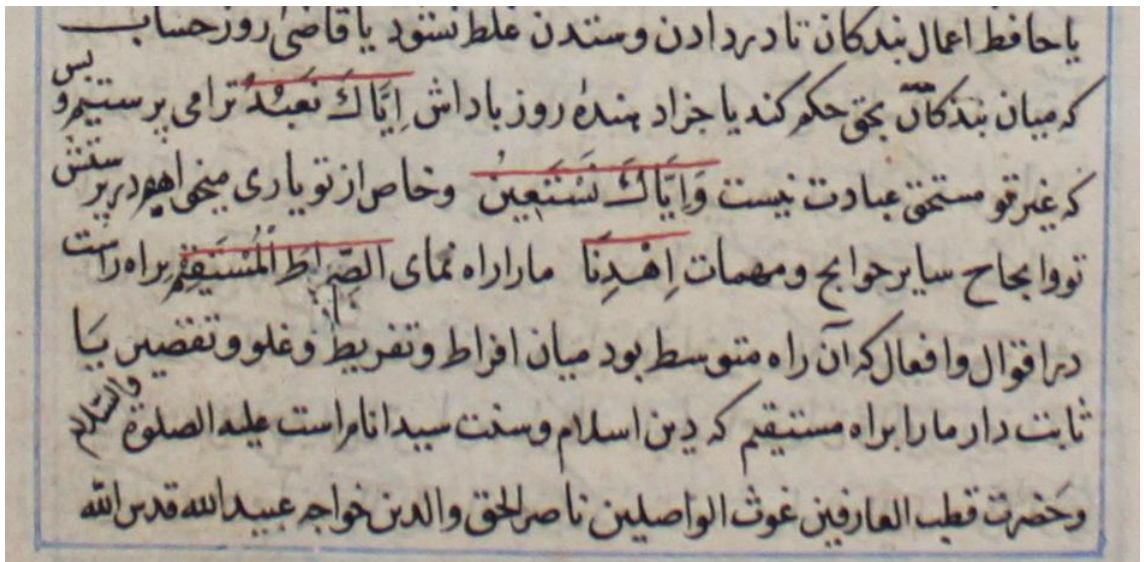 یا حافظ اعمال بندکان تا در دادن و ستدن غلط نشود یا قاضی روز حساب
که میان بندکان بحق حکم کند یا جزا دهندهٔ روز باداش اِیَّاكَ نَعْبُدُ ترا می پرستیم و بس
که غیر تو مستحق عبادت نیست وَاِیَّاكَ نَسْتَعِینُ و خاص از تو یاری میخواهیم در پرستش
تو و انجاح سایر حوایج و مهمات اِهْدِنَا ما را راه نمای الصِّرَاطَ الْمُسْتَقِیمَ براه راست
در اقوال و افعال که آن راه متوسط بود میان افراط و تفریط و غلو و تقصیر یَا
ثابت دار ما را براه مستقیم که دین اسلام و سنت سید انام است علیه الصلوة والسّلام
و حَضرت قطب العارفین غوث الواصلین ناصر الحق والدین خواجه عبید الله قدس الله